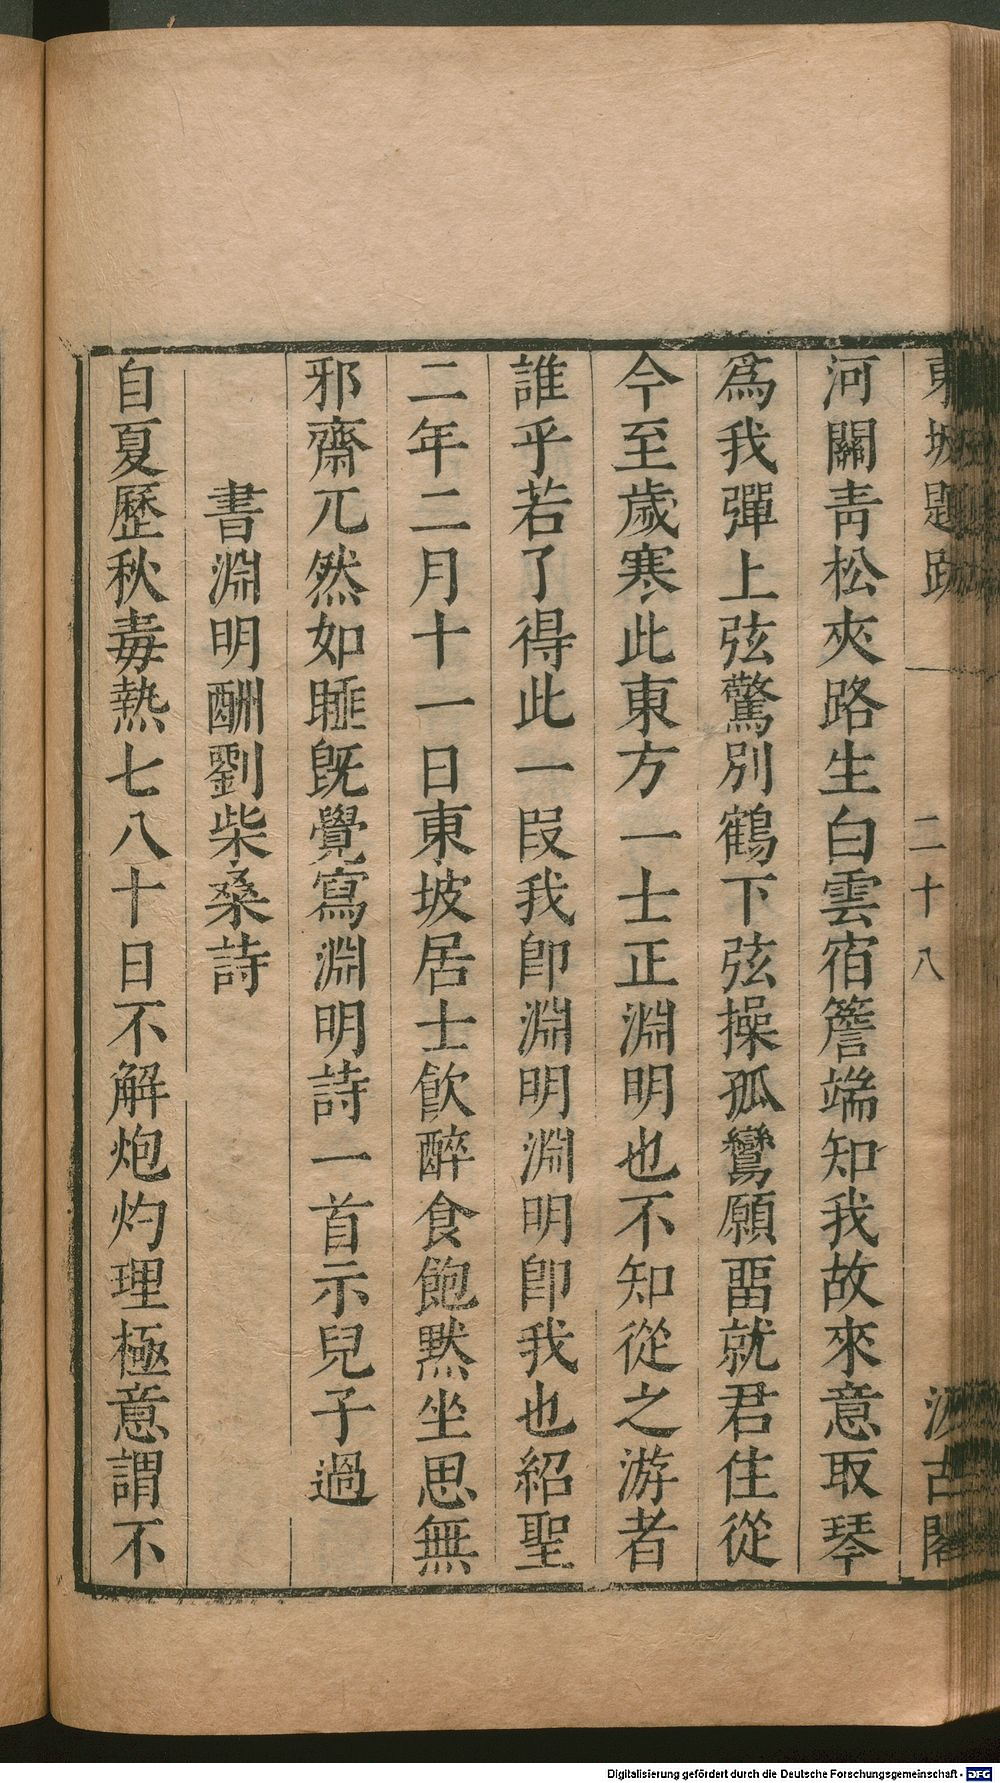 東坡題跋 二十八 汲古閣
河關青松夾路生白雲宿簷端知我故來意取琴
爲我彈上弦驚別鶴下弦操孤鸞願畱就君住從
今至歲寒此東方一士正淵明也不知從之游者
誰乎若了得此一段我卽淵明淵明卽我也紹聖
二年二月十一日東坡居士飮醉食飽默坐思無
邪齋兀然如睡旣覺寫淵明詩一首示兒子過
書淵明酬劉柴桑詩
自夏歷秋毒熱七八十日不解炮灼理極意謂不
Digitalisierung gefördert durch die Deutsche Forschungsgemeinschaft - DFG